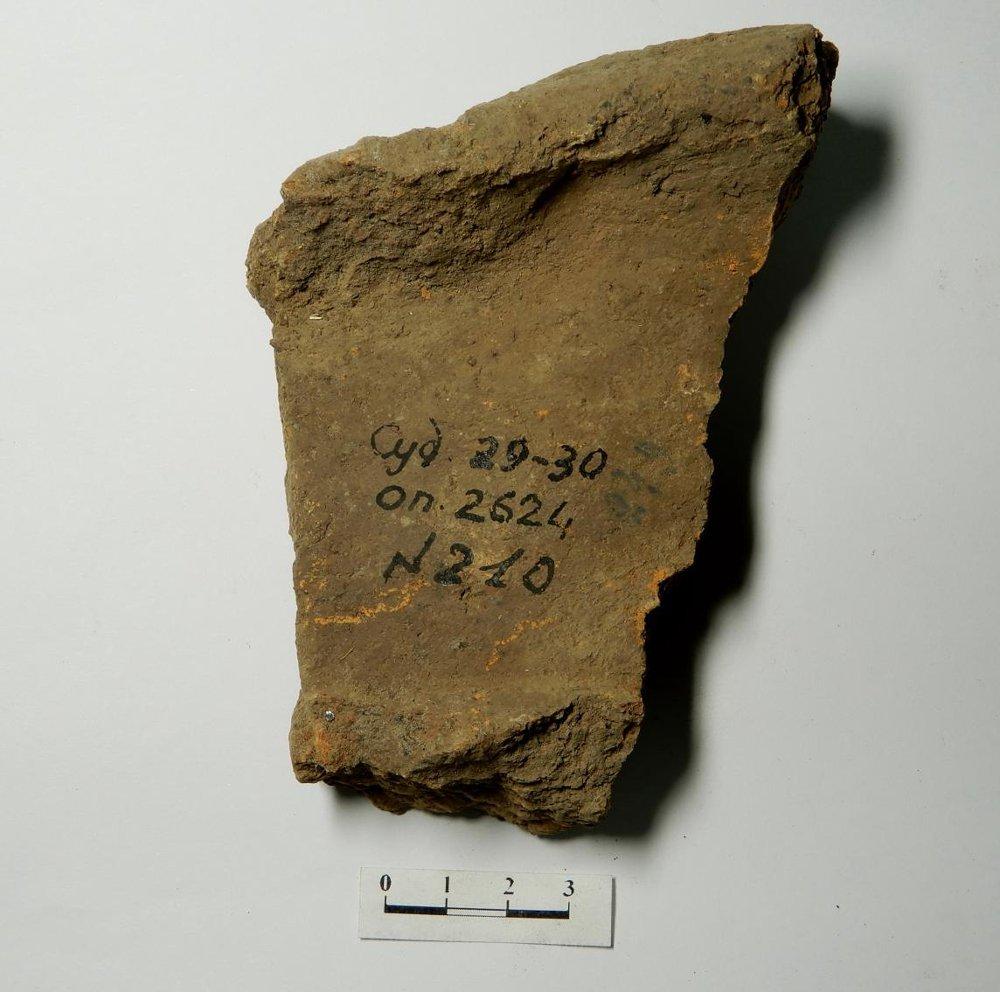 Суд. 29-30
оп. 2624
N210
0 1 2 3